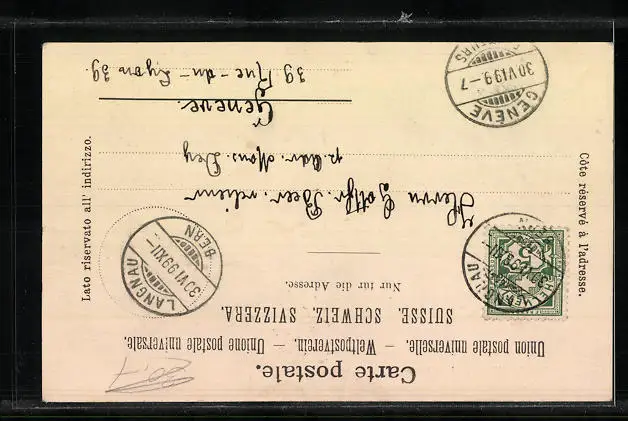 Carte postale.
Union postale universelle. — Weltpostverein. — Unione postale universale.
SUISSE. SCHWEIZ. SVIZZERA.
Nur für die Adresse.
Côte réservé à l'adresse.
Lato riservato all' indirizzo.
LANGNAU
30 VI 99 XII
BERN
LANGNAU
Herrn Gottfr. Beer, relieur
p. adr. Mons. Dey
Genève.
39 Rue - du - Lyon 39
GENÈVE
30 VI 99 - 7